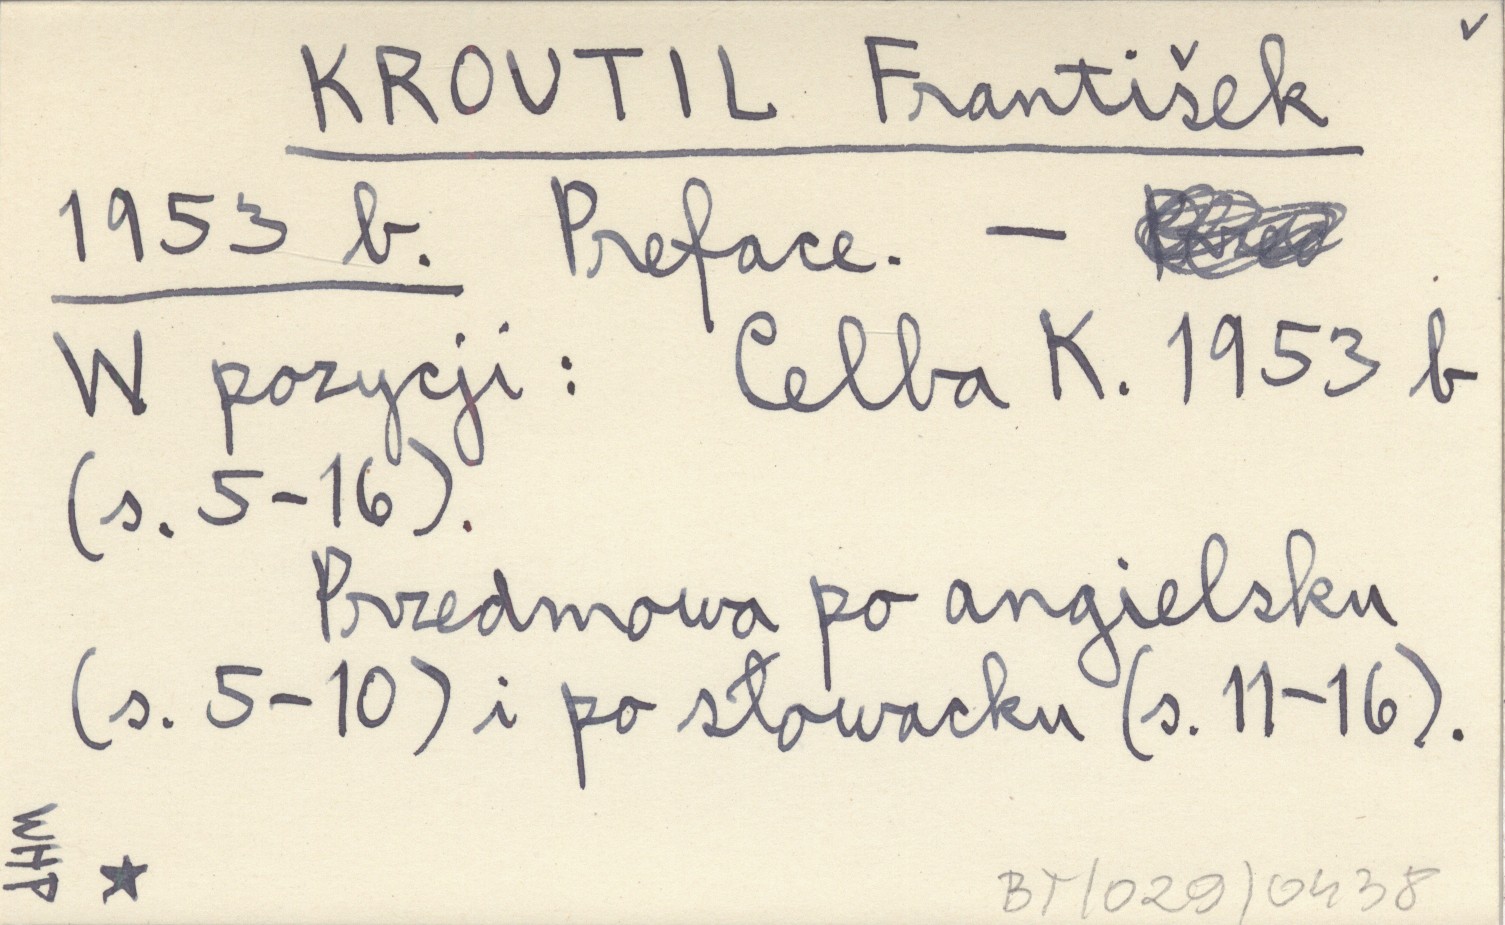 KROUTIL František
1953 b. Preface. –
W pozycji: Celba K. 1953 b
(s. 5–16).
Przedmowa po angielsku
(s. 5–10) i po słowacku (s. 11–16).
WHP ★
BT/029/0438